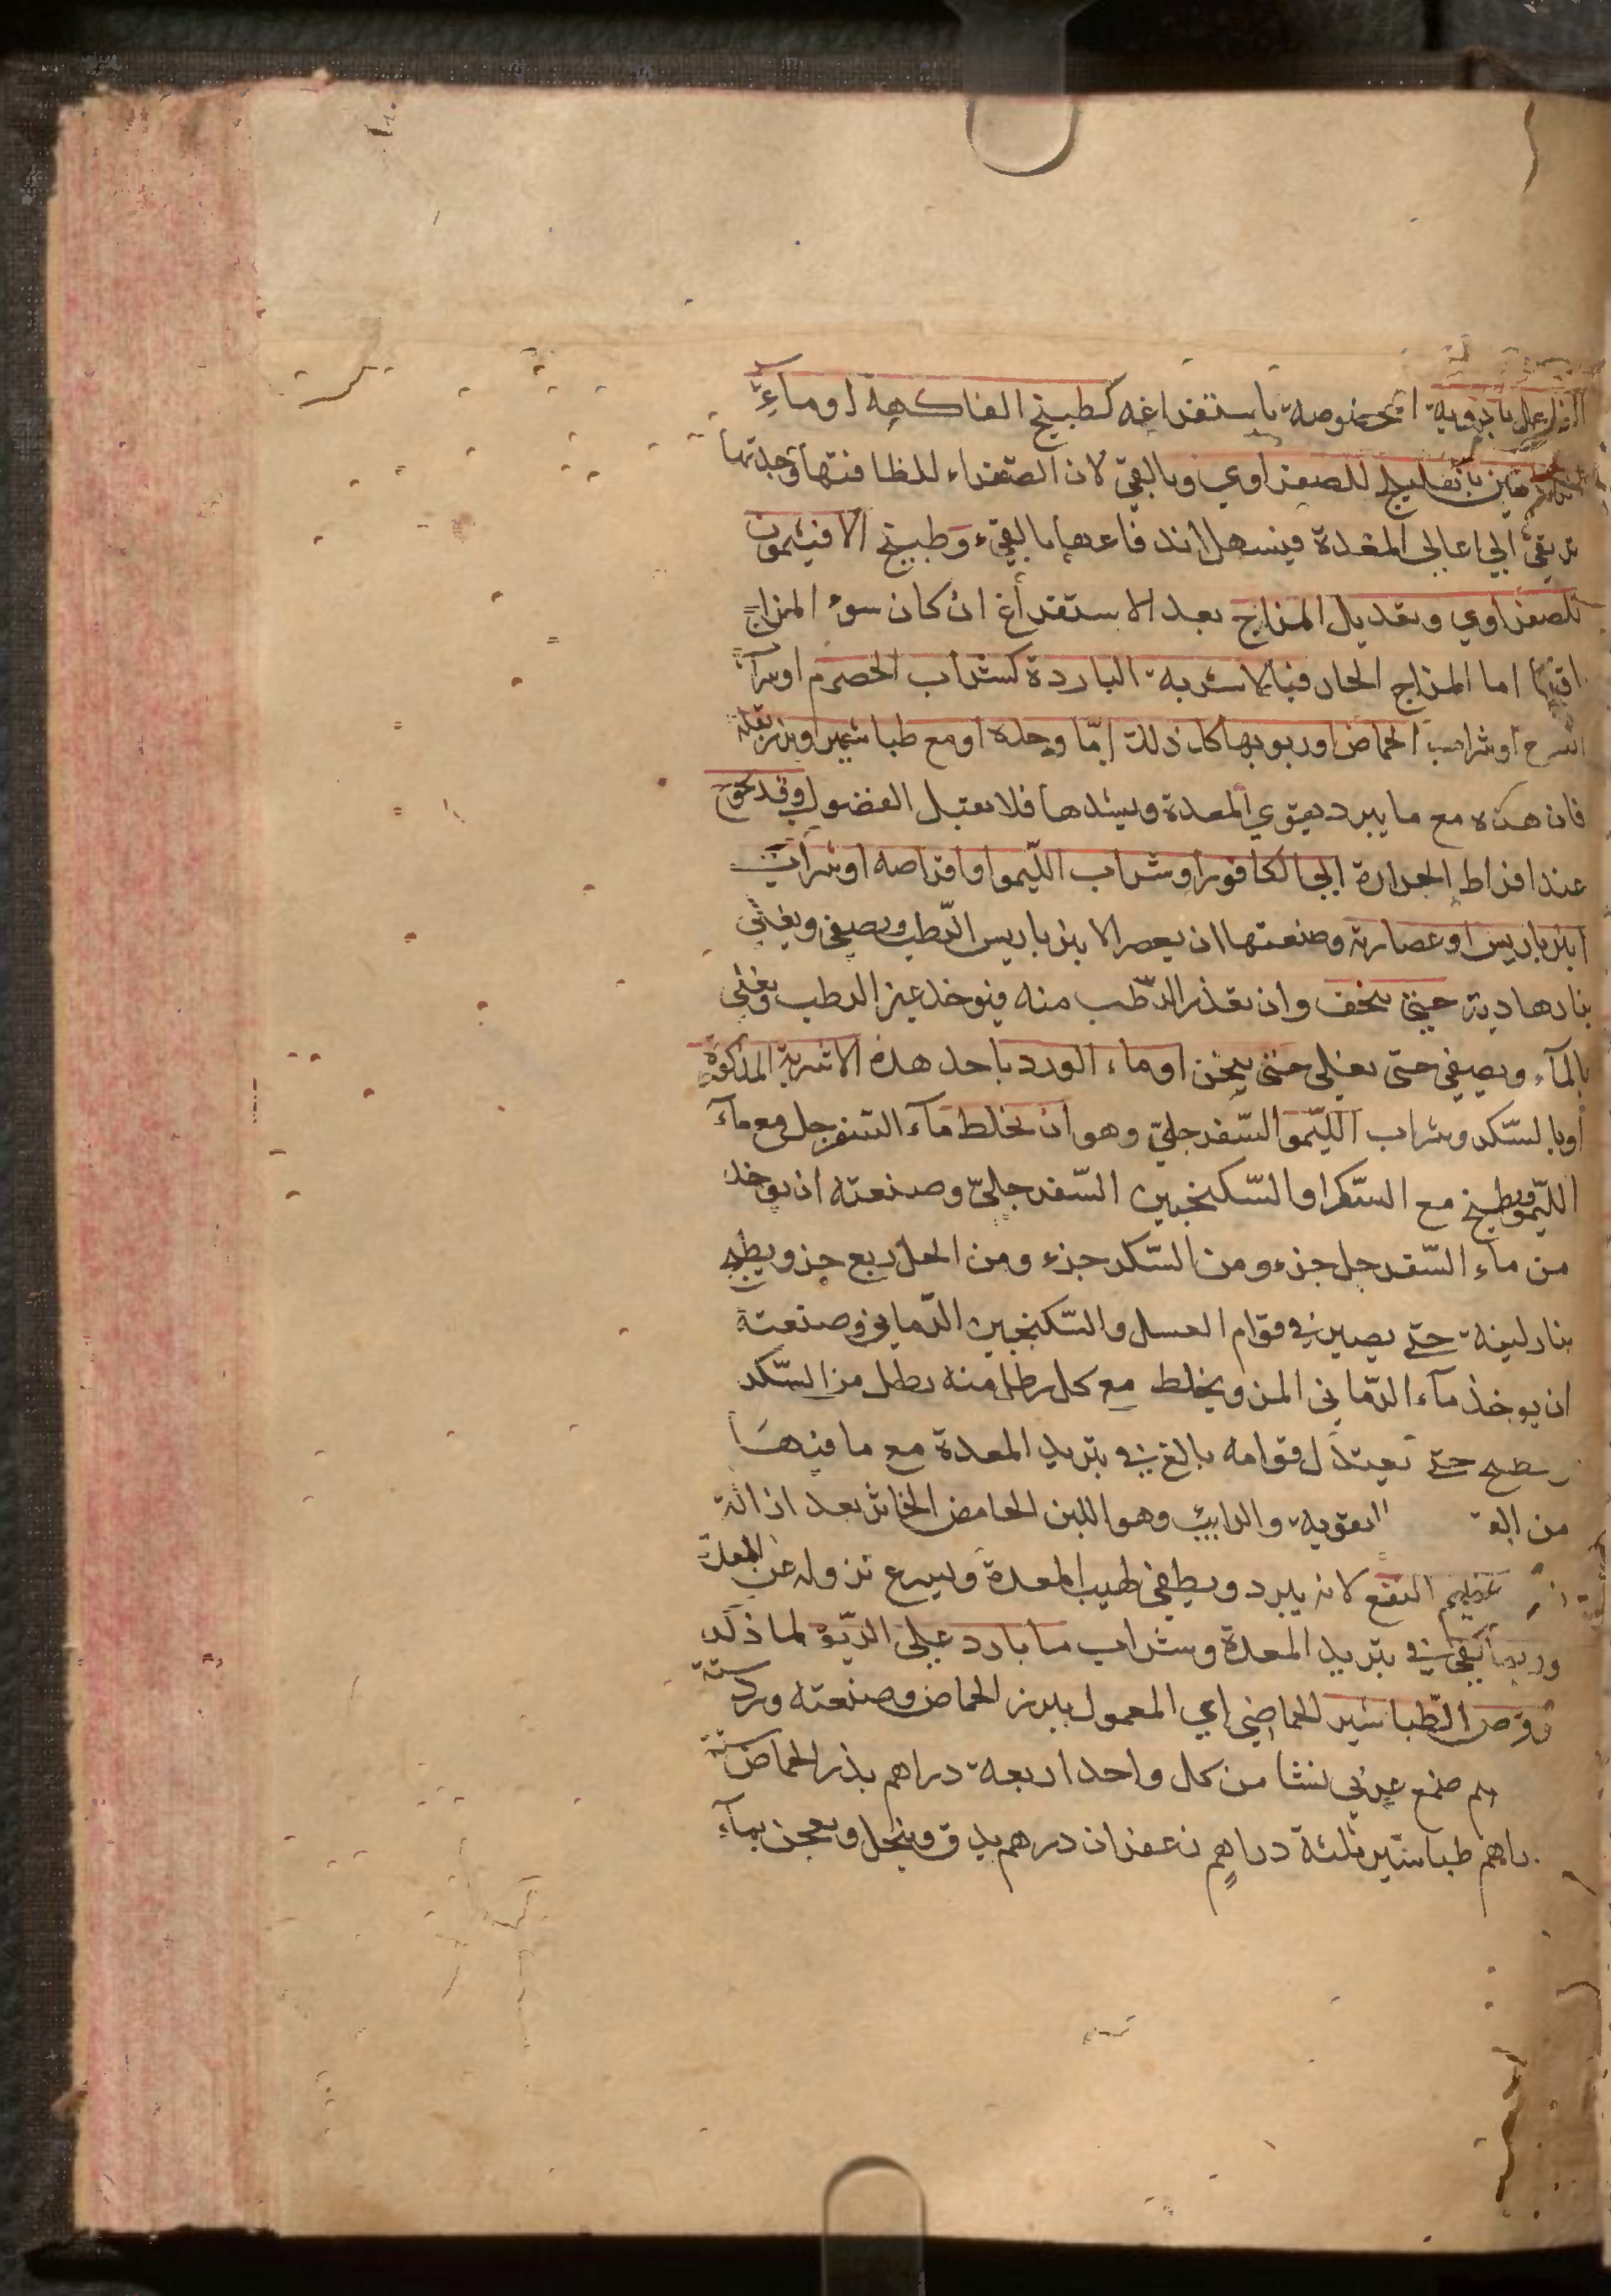 بالادوية المخصوصة باستفراغه كطبيخ الفاكهة او ماء
الرمانين باهليلج للصفراوي وبالقيء لان الصفراء للطافتها وحدتها
ترتقي الى اعالي المعدة فيسهل اندفاعها بالقيء وطبيخ الافيثمون
للصفراوي وتعديل المزاج بعد الاستفراغ ان كان سوء المزاج
اما المزاج الحار فبالاشربة الباردة كشراب الحصرم او شراب
او شراب الحماض او ربوبها كل ذلك امّا وحده او مع طباشير او بزر بقلة
فان هذه مع ما يبرد يقوي المعدة ويشدها فلا تقبل الفضول وقد تحوج
عند افراط الحرارة الى الكافور او شراب الليّمو او اقراصه او شراب
انبرباريس او عصارته وصنعتها ان يعصر الانبرباريس الرّطب ويصفى ويغلى
بنار هادية حتى يخف وان تعذر الرّطب منه فيؤخذ غير الرطب ويغلى
بالمآء ويصفى حتى يغلى حتى يثخن او ماء الورد باحد هذه الاشربة المذكورة
او بالسّكر وشراب الليّمو السّفرجليّ وهو ان يخلط مآء السّفرجل مع مآء
الليّمو ويطبخ مع السّكر او السّكنجبين السّفرجليّ وصنعته ان يؤخذ
من ماء السّفرجل جزء ومن السّكر جزء ومن الخل ربع جزو ويطبخ
بنار لينة حتى يصير في قوام العسل والسّكنجبين الرّماني وصنعته
ان يوخذ مآء الرّماني المز ويخلط مع كل رطل منه رطل من السّكر
يطبخ حتى يعتدل قوامه بالغ في تبريد المعدة مع ما فيها
من التقوية والرايب وهو اللبن الحامض الخاثر بعد ازالة
عظيم النفع لانه يبرد ويطفي لهيب المعدة ويسرع نزوله عن المعدة
وربما يكفي في تبريد المعدة وشراب ما بارد على الرّيق لما ذكر
قرص الطّباشير الحماضي اي المعمول ببزر الحماض وصنعته ورد ستة
صمغ عربي نشا من كل واحد اربعة دراهم بذر الحماض ستة
دراهم طباشير ثلثة دراهم زعفران درهم يدق وينخل ويعجن بمآء